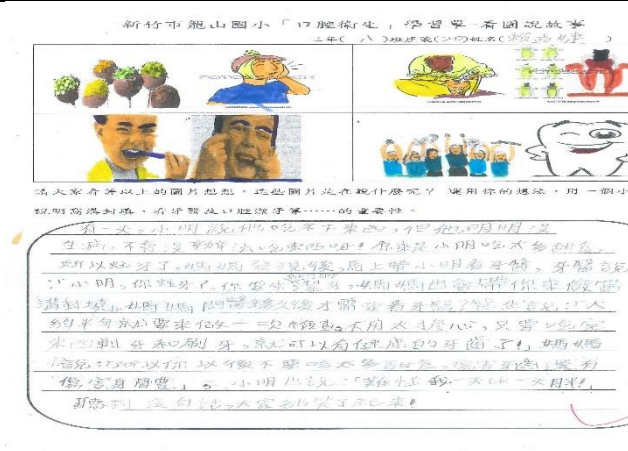 新竹市龍山國小「口腔衛生」學習單-看圖說故事
年(八)班座號( )姓名( )
請大家看完以上的圖片想想,這些圖片是在說什麼呢? 運用你的想法,用一個小
說明窩溝封填、看牙醫及口腔潔牙等……的重要性。
有一天,小明說他吃不下東西,但他明明沒
生病,不會沒辦法吃東西呀!原來是小明吃太多甜食,
所以蛀牙了,媽媽發現後,馬上帶小明看牙醫,牙醫說
:「小明,你蛀牙了,你要 潔牙,媽媽也要帶你來做窩
溝封填」媽媽問醫 後才需要看牙醫?醫生說:「大
約半年就要來做一次檢查。不用太擔心,只要吃完
東西刷牙和刷牙,就可以有健康的牙齒了!」媽媽
說:「所以你以後不要吃太多甜食,傷害牙齒,還有
傷害身體。」小明也說:「難怪我一天比一天胖!」
聽到這句話,大家都笑了起來!